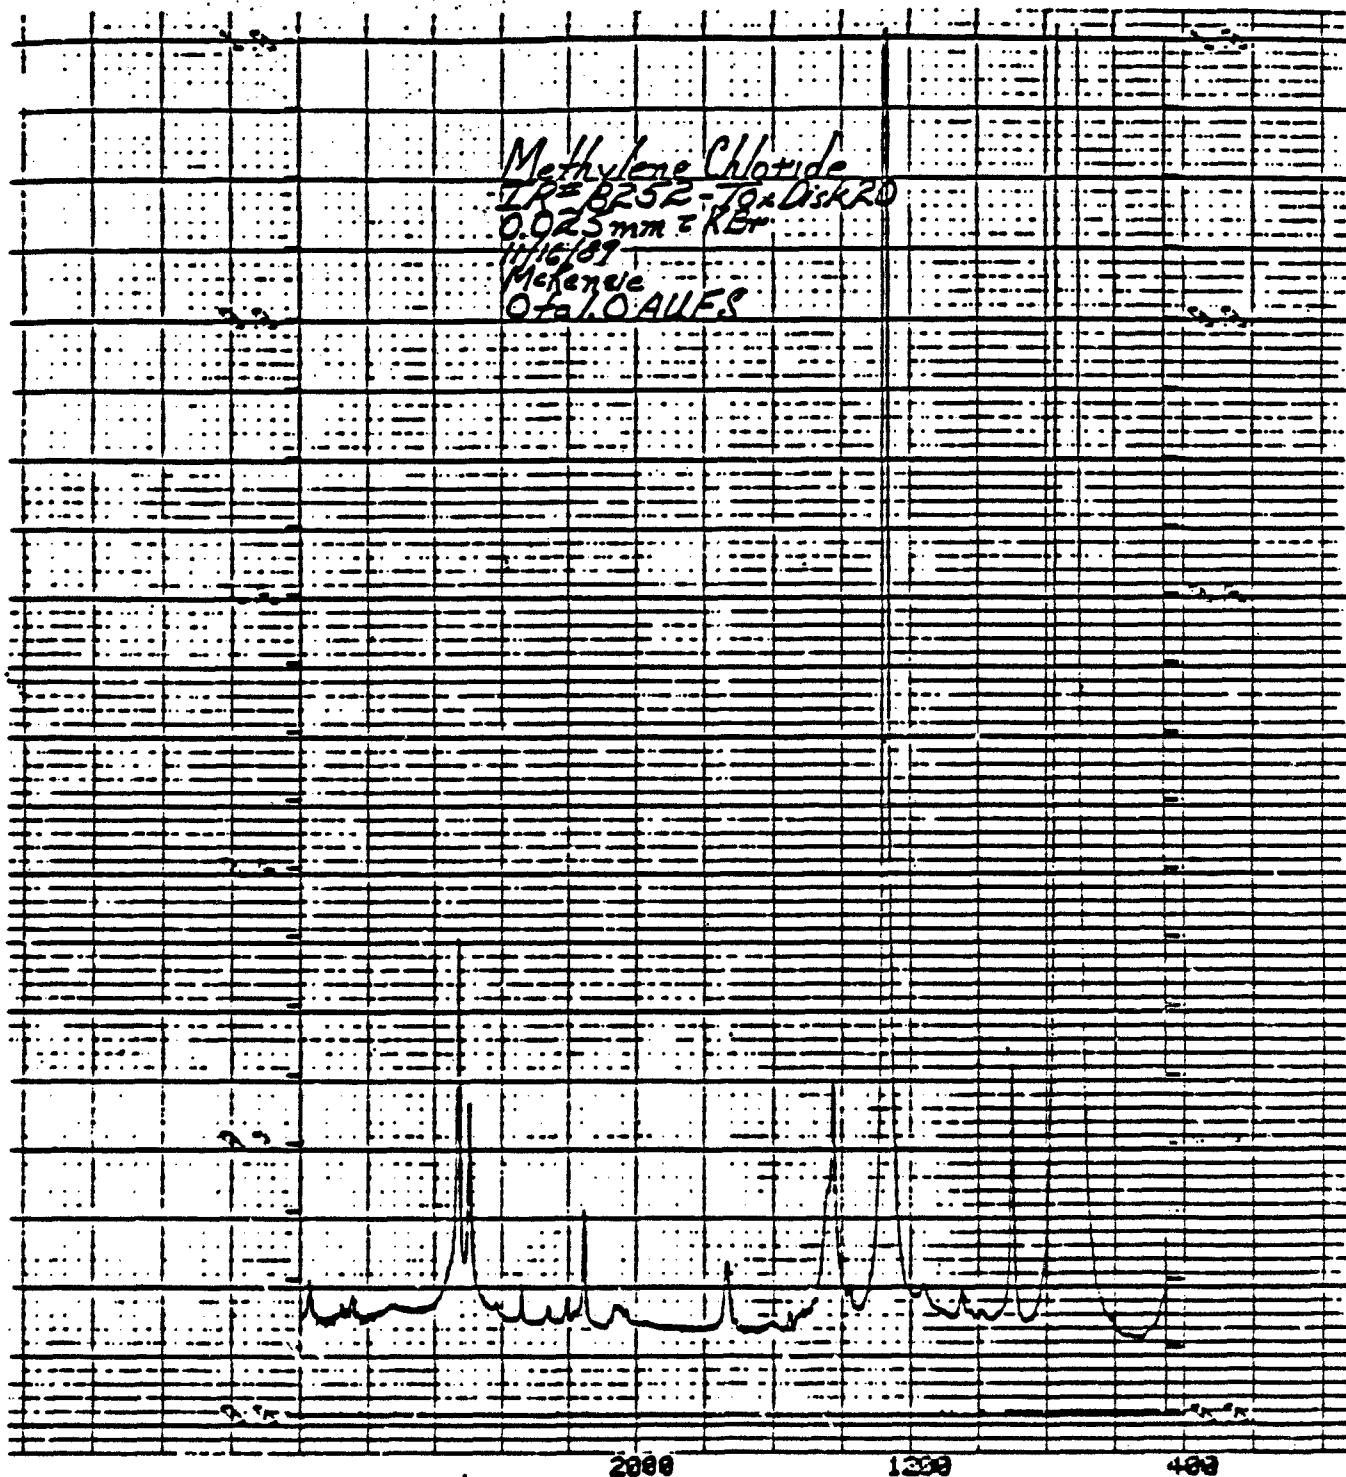 Methylene Chloride
IR# B252-Tox Disk 20
0.025mm c̄ KBr
11/16/89
McKenzie
0 to 1.0 AUFS
2000 1200 400